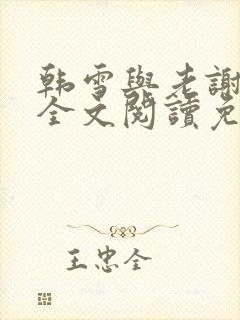 韩雪與老謝
全文閱讀免
王忠全